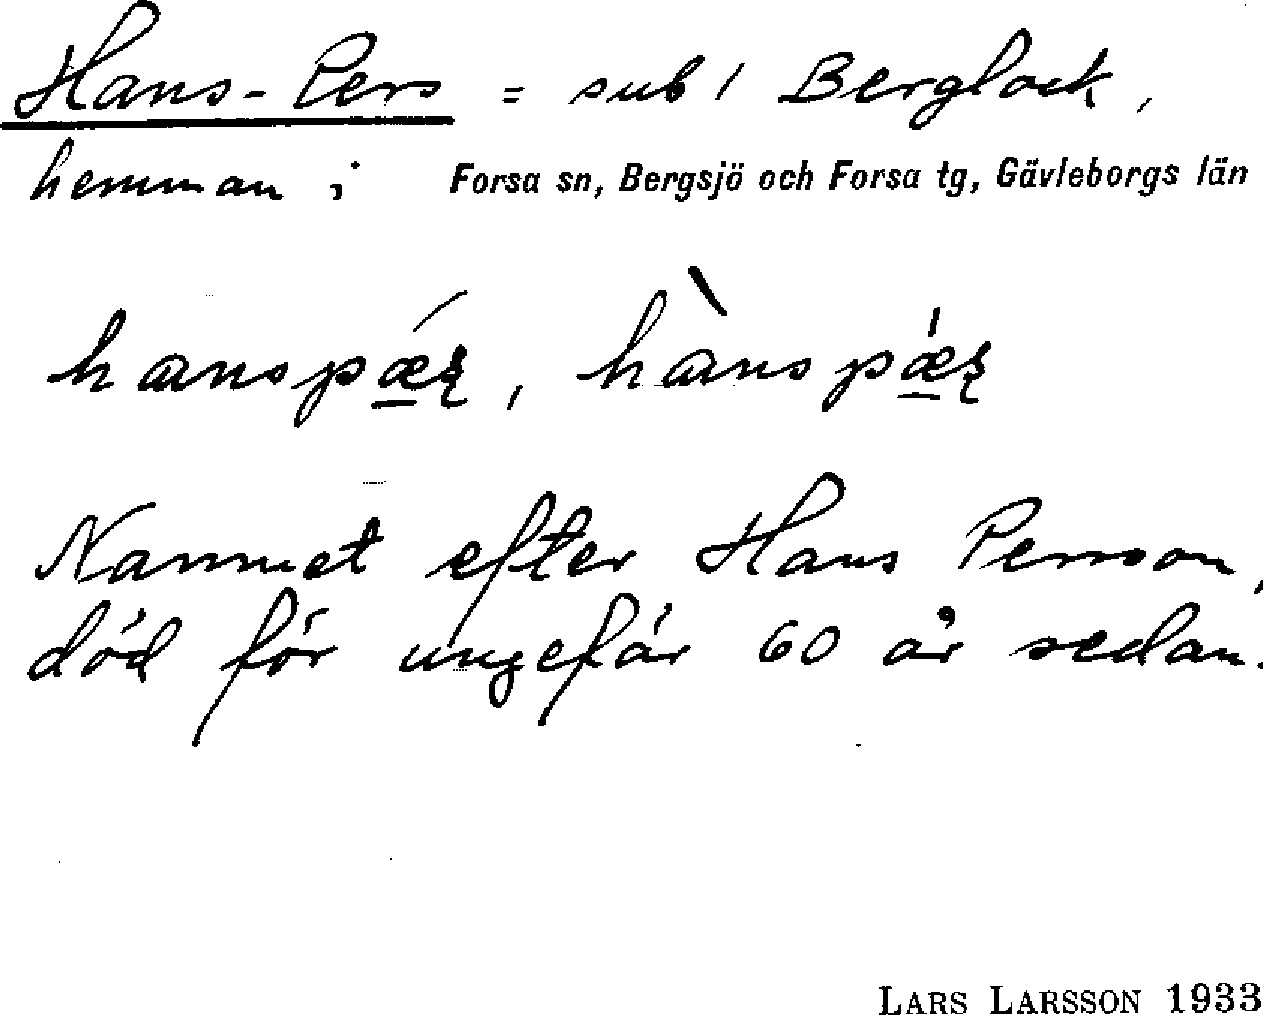 Hans-Pers = sub 1 Berglock,
hemman i Forsa sn, Bergsjö och Forsa tg, Gävleborgs län
Namnet efter Hans Persson,
död för ungefär 60 år sedan.
LARS LARSSON 1933